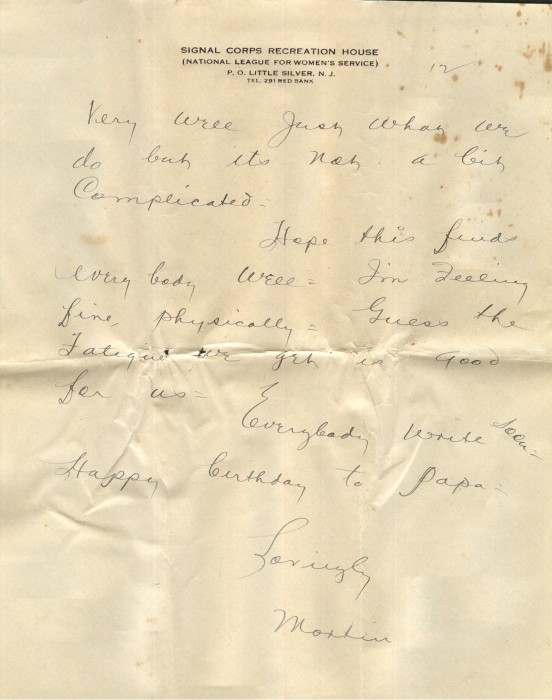 SIGNAL CORPS RECREATION HOUSE
(NATIONAL LEAGUE FOR WOMEN'S SERVICE)
P. O. LITTLE SILVER, N. J.
TEL. 291 RED BANK
12
Very well Just what we
do but its not a bit
Complicated=
Hope this finds
every body well= I'm Feeling
fine, physically= Guess the
Fatigue we get is good
for us=
Everybody write soon=
Happy birthday to Papa=
Lovingly
Martin